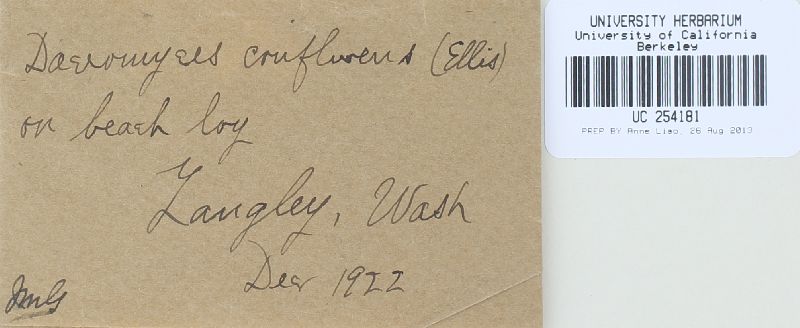 Dacromyces confluens (Ellis)
on beach log
Langley, Wash
Dec 1922
UNIVERSITY HERBARIUM
University of California
Berkeley
UC 254181
PREP BY Anne Liao, 26 Aug 2013